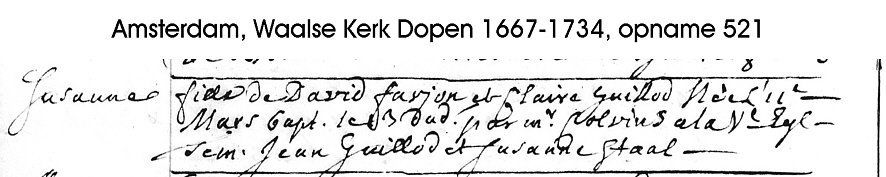 Amsterdam, Waalse Kerk Dopen 1667-1734, opname 521
Susanne fille de David farjon et Claire Guillod Née l'11e
Mars bapt. le 13 dud. par mr. Colvius a la Ve. Egl
sem. Jean Guillod et Susanne Staal